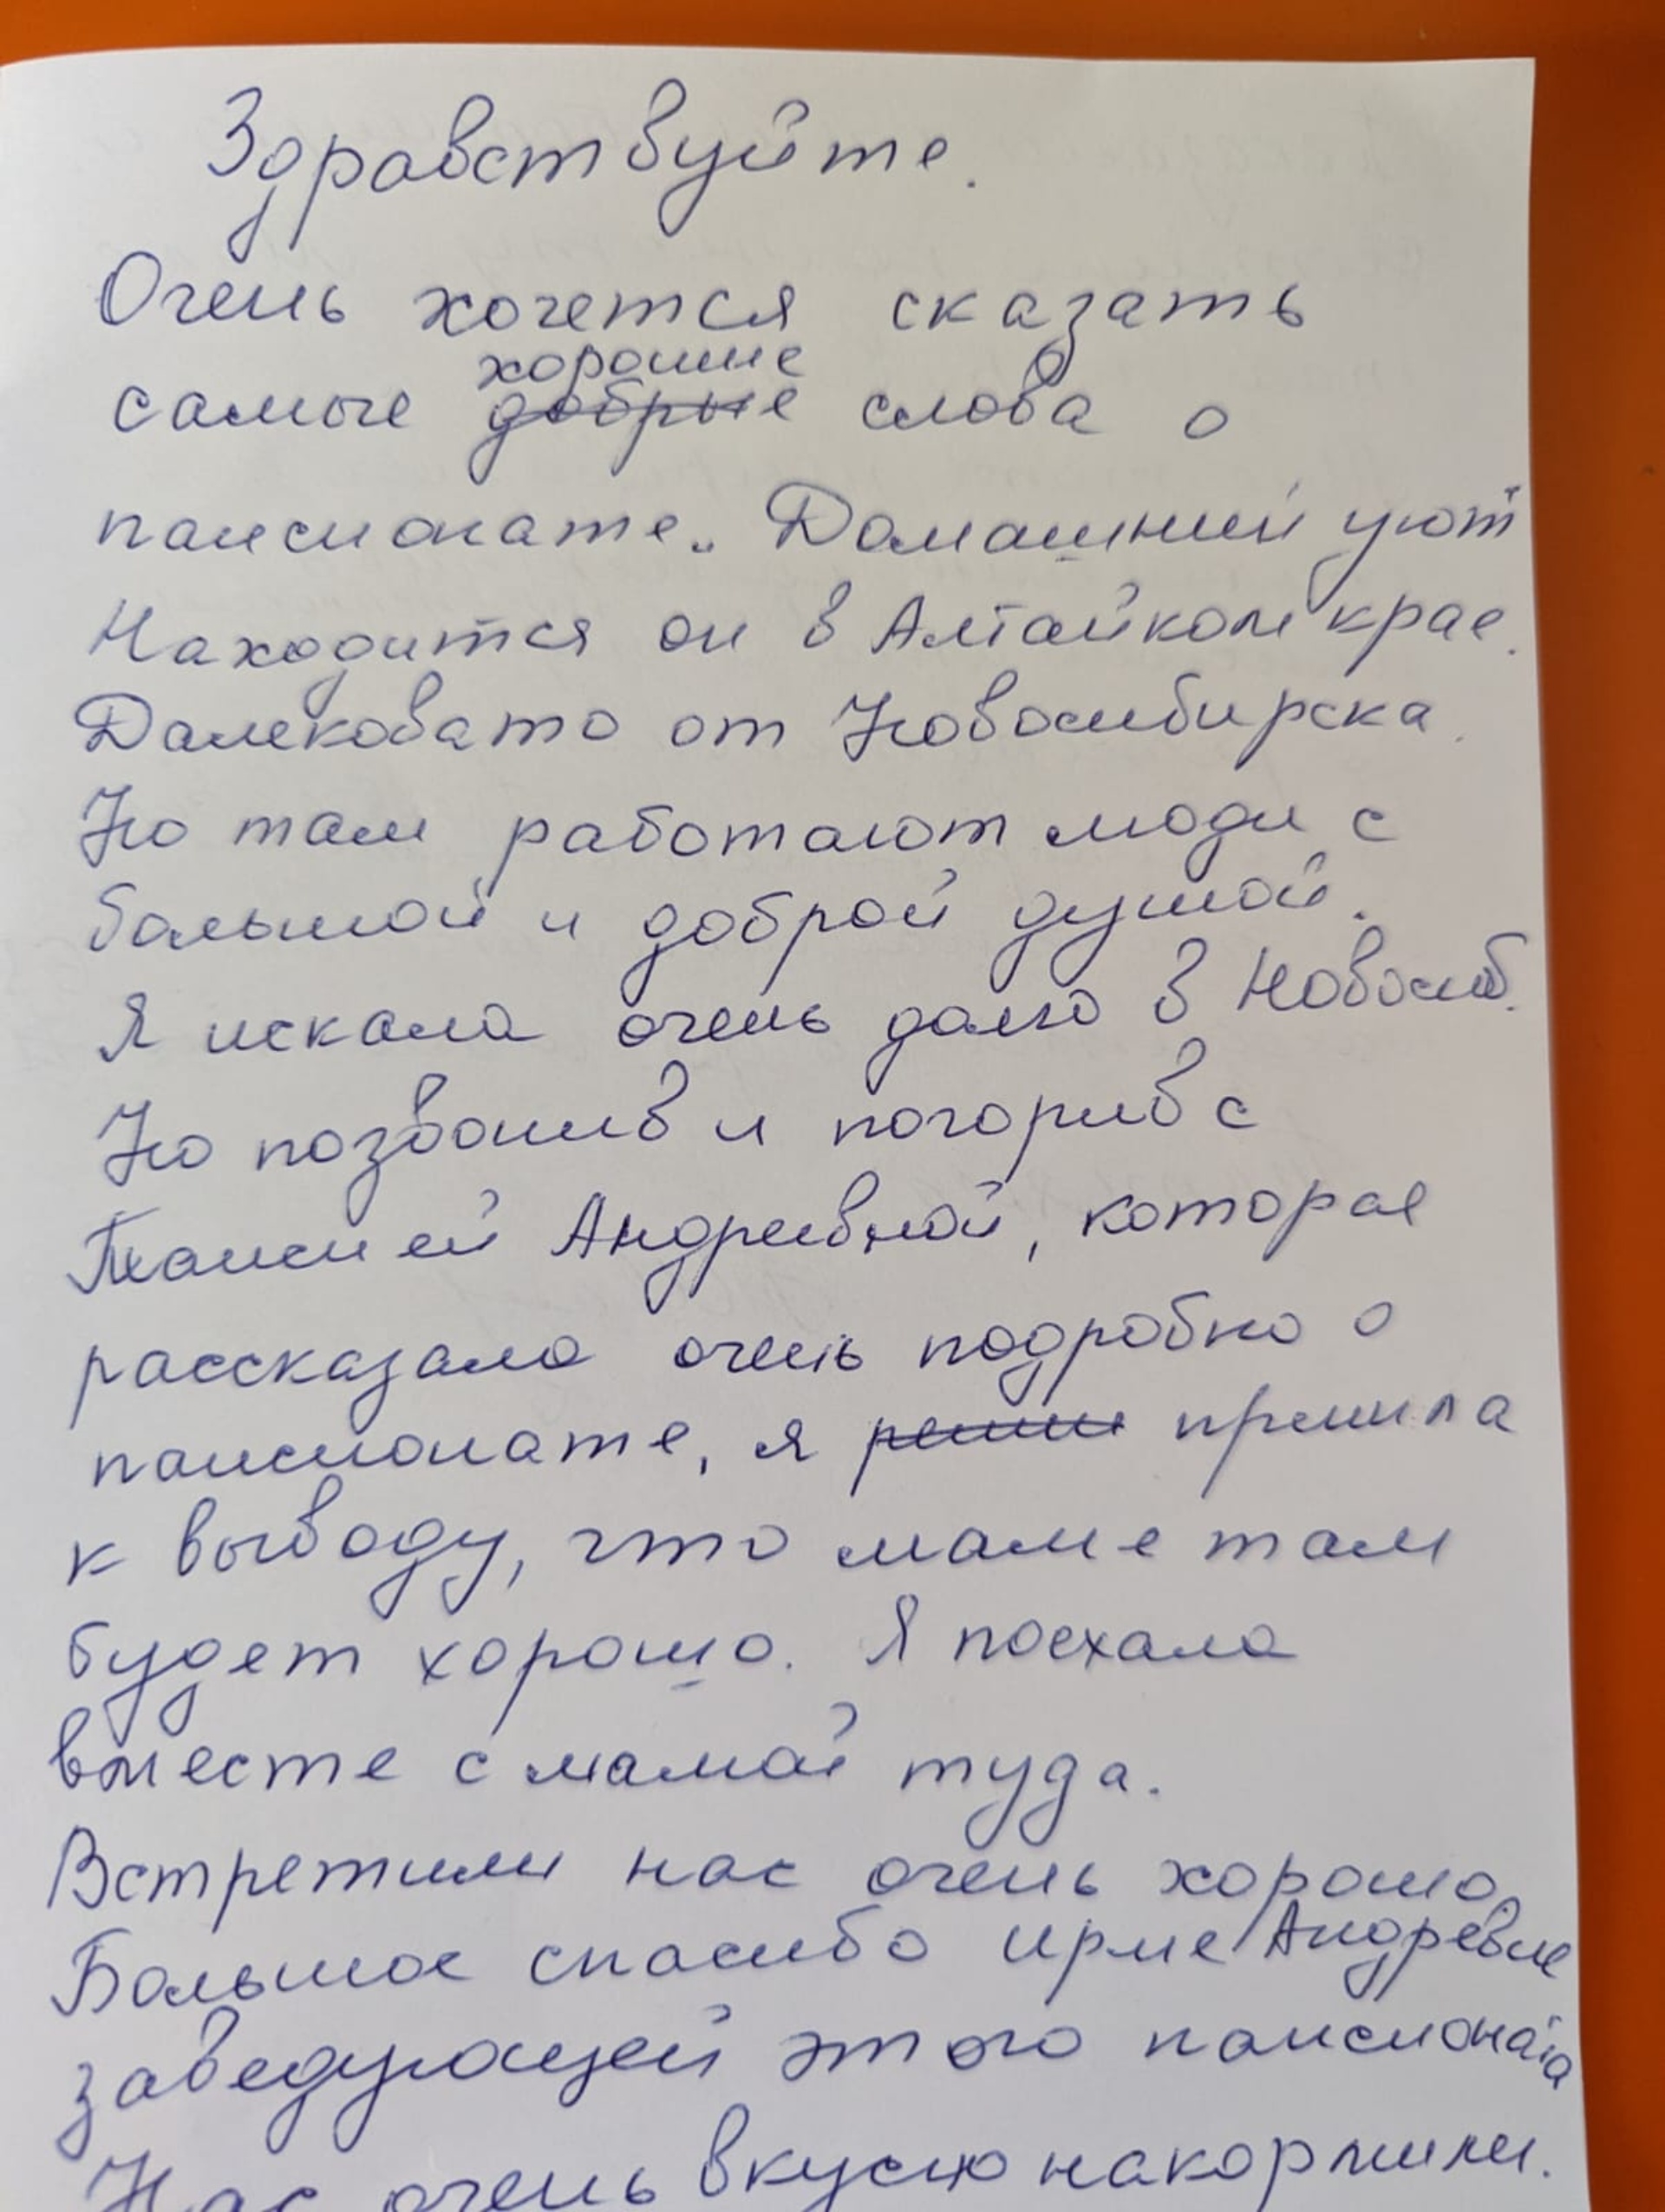 Здравствуйте.
Очень хочется сказать
хорошие
самые добрые слова о
пансионате.. Домашний уют
Находится он в Алтайком крае.
Далековато от Новосибирска.
Но там работают люди с
большой и доброй душой.
Я искала очень долго в Новосиб.
Но позвонив и погорив с
Таисией Андреевной, которае
рассказала очень подробно о
пансионате, я реши пришла
к выводу, что маме там
будет хорошо. Я поехала
вместе с мамой туда.
Встретили нас очень хорошо.
Большое спасибо Ирме Андревне
заведующей этого пансионата
Нас очень вкусно накормили.